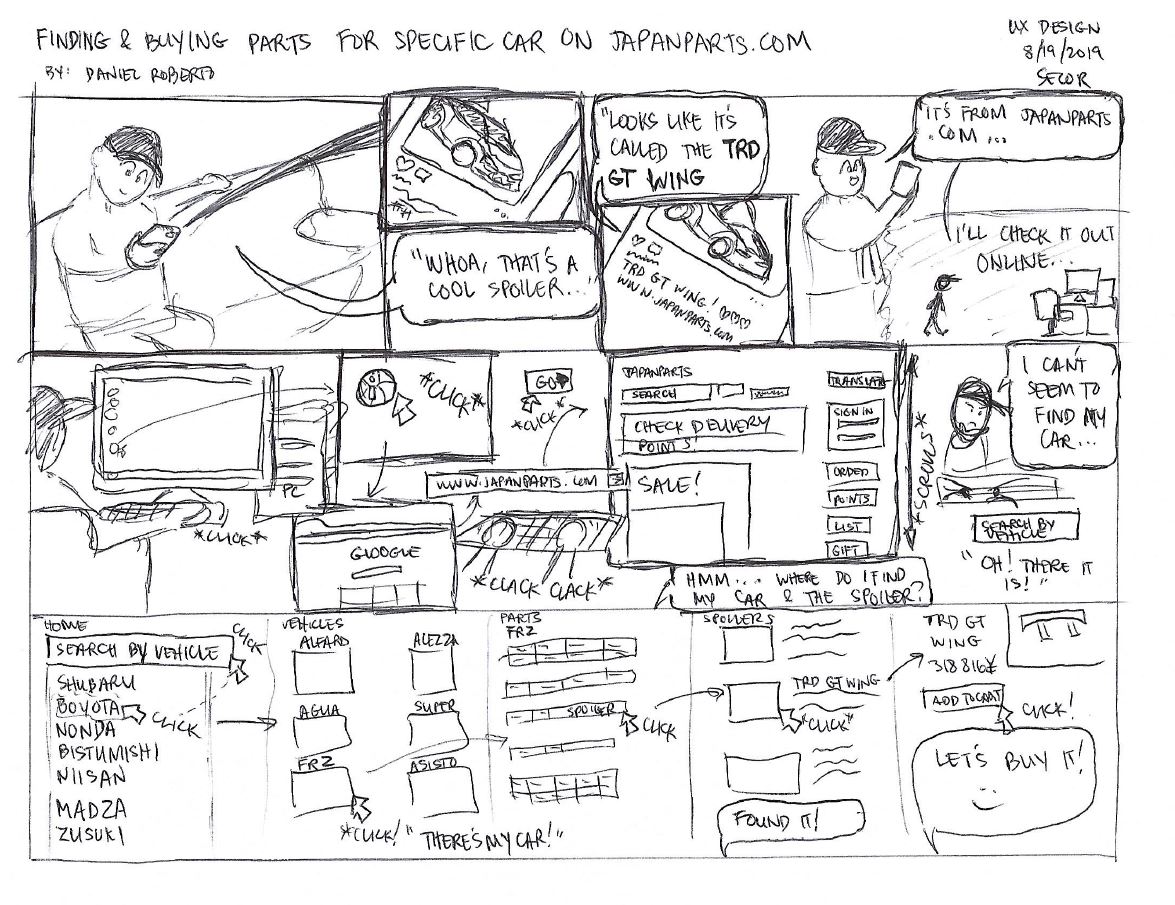 FINDING & BUYING PARTS FOR SPECIFIC CAR ON JAPANPARTS.COM
BY: DANIEL ROBERTO
UX DESIGN
8/19/2019
SECOR
"WHOA, THAT'S A
COOL SPOILER..."
"LOOKS LIKE IT'S
CALLED THE TRD
GT WING
TRD GT WING!
WWW.JAPANPARTS.COM
"IT'S FROM JAPANPARTS
.COM...
I'LL CHECK IT OUT
ONLINE...
PC
*CLICK*
*CLICK*
GO
*CLICK*
WWW.JAPANPARTS.COM
GLOOGLE
*CLACK CLACK*
JAPANPARTS
SEARCH
CHECK DELIVERY
POINTS!
SALE!
TRANSLATE
SIGN IN
ORDER
POINTS
LIST
GIFT
*SCROLLS*
HMM... WHERE DO I FIND
MY CAR & THE SPOILER?
I CAN'T
SEEM TO
FIND MY
CAR...
SEARCH BY
VEHICLE
"OH! THERE IT
IS!"
HOME
SEARCH BY VEHICLE
CLICK
SHUBARU
BOYOTA
CLICK
NONDA
BISTUMISHI
NIISAN
MADZA
ZUSUKI
VEHICLES
ALFARD
ALEZZA
AGUA
SUPER
FRZ
ASISTO
*CLICK!
"THERE'S MY CAR!"
PARTS
FRZ
SPOILER
CLICK
SPOILERS
TRD GT WING
*CLICK*
FOUND IT!
TRD GT
WING
318816¥
ADD TO CART
CLICK!
LET'S BUY IT!